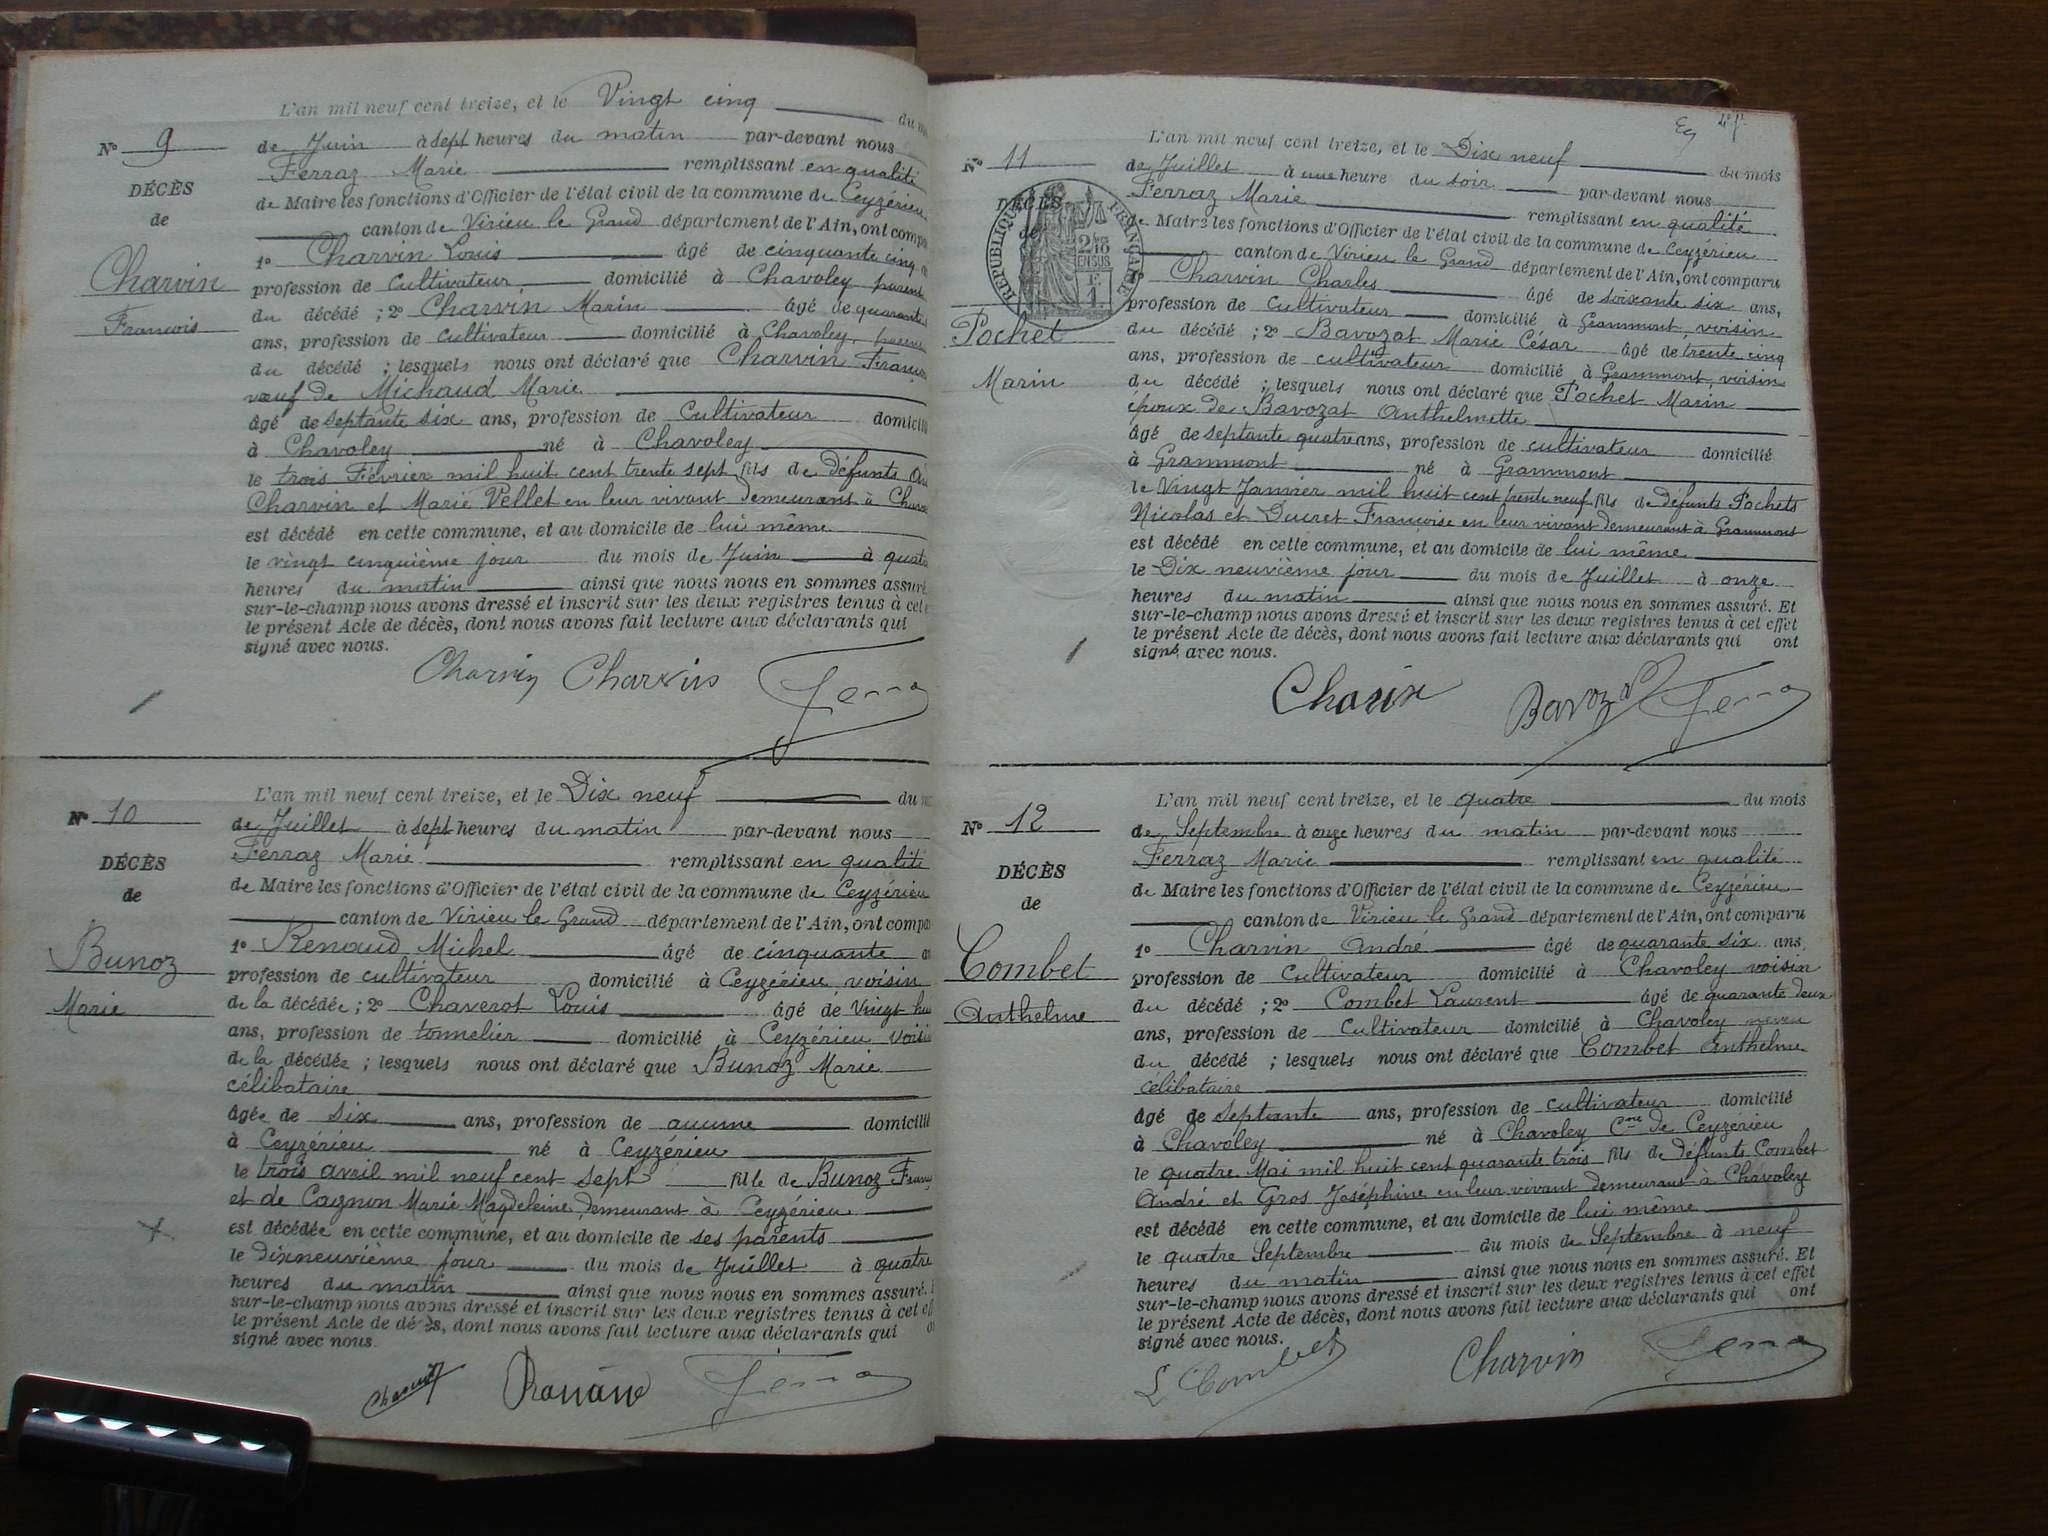 L'an mil neuf cent treize, et le Vingt cinq du
N° 9
de Juin à sept heures du matin par-devant nous
Ferraz Marie remplissant en qualité
DÉCÈS
de Maire les fonctions d'Officier de l'état civil de la commune de Ceyzérieu
de
canton de Virieu le Grand département de l'Ain, ont compa
Charvin
François
1° Charvin Louis âgé de cinquante cinq
profession de cultivateur domicilié à Chavoley parent
du décédé ; 2° Charvin Marin âgé de quarante
ans, profession de cultivateur domicilié à Chavoley, parent
du décédé ; lesquels nous ont déclaré que Charvin Franç
veuf de Michaud Marie
âgé de septante six ans, profession de cultivateur domicili
à Chavoley né à Chavoley
le trois Février mil huit cent trente sept fils de défunts
Charvin et Marie Vellet en leur vivant demeurant à Chavo
est décédé en cette commune, et au domicile de lui même
le vingt cinquième jour du mois de Juin à quatre
heures du matin ainsi que nous nous en sommes assuré
sur-le-champ nous avons dressé et inscrit sur les deux registres tenus à cet
le présent Acte de décès, dont nous avons fait lecture aux déclarants qui
signé avec nous.
Charvin Charvin Ferra
L'an mil neuf cent treize, et le Dix neuf du
N° 10
de Juillet à sept heures du matin par-devant nous
Ferraz Marie remplissant en qualité
DÉCÈS
de Maire les fonctions d'Officier de l'état civil de la commune de Ceyzérieu
de
canton de Virieu le Grand département de l'Ain, ont compa
Bunoz
Marie
1° Renaud Michel âgé de cinquante
profession de cultivateur domicilié à Ceyzérieu, voisin
de la décédée ; 2° Chaverot Louis âgé de Vingt hu
ans, profession de tonnelier domicilié à Ceyzérieu voisi
de la décédée ; lesquels nous ont déclaré que Bunoz Marie
célibataire
âgée de six ans, profession de aucune domicilié
à Ceyzérieu né à Ceyzérieu
le trois avril mil neuf cent sept fille de Bunoz Franç
et de Cagnon Marie Magdeleine, demeurant à Ceyzérieu
est décédée en cette commune, et au domicile de ses parents
le dixneuvième jour du mois de Juillet à quatre
heures du matin ainsi que nous nous en sommes assuré.
sur-le-champ nous avons dressé et inscrit sur les deux registres tenus à cet
le présent Acte de décès, dont nous avons fait lecture aux déclarants qui
signé avec nous.
Renaud Ferra
L'an mil neuf cent treize, et le Dix neuf du mois
N° 11
de Juillet à une heure du soir par-devant nous
Ferraz Marie remplissant en qualité
DÉCÈS
de Maire les fonctions d'Officier de l'état civil de la commune de Ceyzérieu
de
canton de Virieu le Grand département de l'Ain, ont comparu
RÉPUBLIQUE FRANÇAISE
2/10 EN SUS
F. 1
Pochet
Marin
Charvin Charles âgé de soixante six ans,
profession de cultivateur domicilié à Grammont, voisin
du décédé ; 2° Bavozat Marie César âgé de trente cinq
ans, profession de cultivateur domicilié à Grammont, voisin
du décédé ; lesquels nous ont déclaré que Pochet Marin
époux de Bavozat Anthelmette
âgé de septante quatre ans, profession de cultivateur domicilié
à Grammont né à Grammont
le Vingt Janvier mil huit cent trente neuf fils de défunts Pochets
Nicolas et Ducret Françoise en leur vivant demeurant à Grammont
est décédé en cette commune, et au domicile de lui même
le Dix neuvième jour du mois de Juillet à onze
heures du matin ainsi que nous nous en sommes assuré. Et
sur-le-champ nous avons dressé et inscrit sur les deux registres tenus à cet effet
le présent Acte de décès, dont nous avons fait lecture aux déclarants qui ont
signé avec nous.
Bavozat Ferra
L'an mil neuf cent treize, et le quatre du mois
N° 12
de Septembre à onze heures du matin par-devant nous
Ferraz Marie remplissant en qualité
DÉCÈS
de Maire les fonctions d'Officier de l'état civil de la commune de Ceyzérieu
de
canton de Virieu le Grand département de l'Ain, ont comparu
Combet
Anthelme
1° Charvin André âgé de quarante six ans,
profession de cultivateur domicilié à Chavoley voisin
du décédé ; 2° Combet Laurent âgé de quarante deux
ans, profession de cultivateur domicilié à Chavoley neveu
du décédé ; lesquels nous ont déclaré que Combet Anthelme
célibataire
âgé de septante ans, profession de cultivateur domicilié
à Chavoley né à Chavoley Cne de Ceyzérieu
le quatre Mai mil huit cent quarante trois fils de défunts Combet
André et Gros Joséphine en leur vivant demeurant à Chavoley
est décédé en cette commune, et au domicile de lui même
le quatre Septembre du mois de Septembre à neuf
heures du matin ainsi que nous nous en sommes assuré. Et
sur-le-champ nous avons dressé et inscrit sur les deux registres tenus à cet effet
le présent Acte de décès, dont nous avons fait lecture aux déclarants qui ont
signé avec nous.
L Combet Charvin Ferra